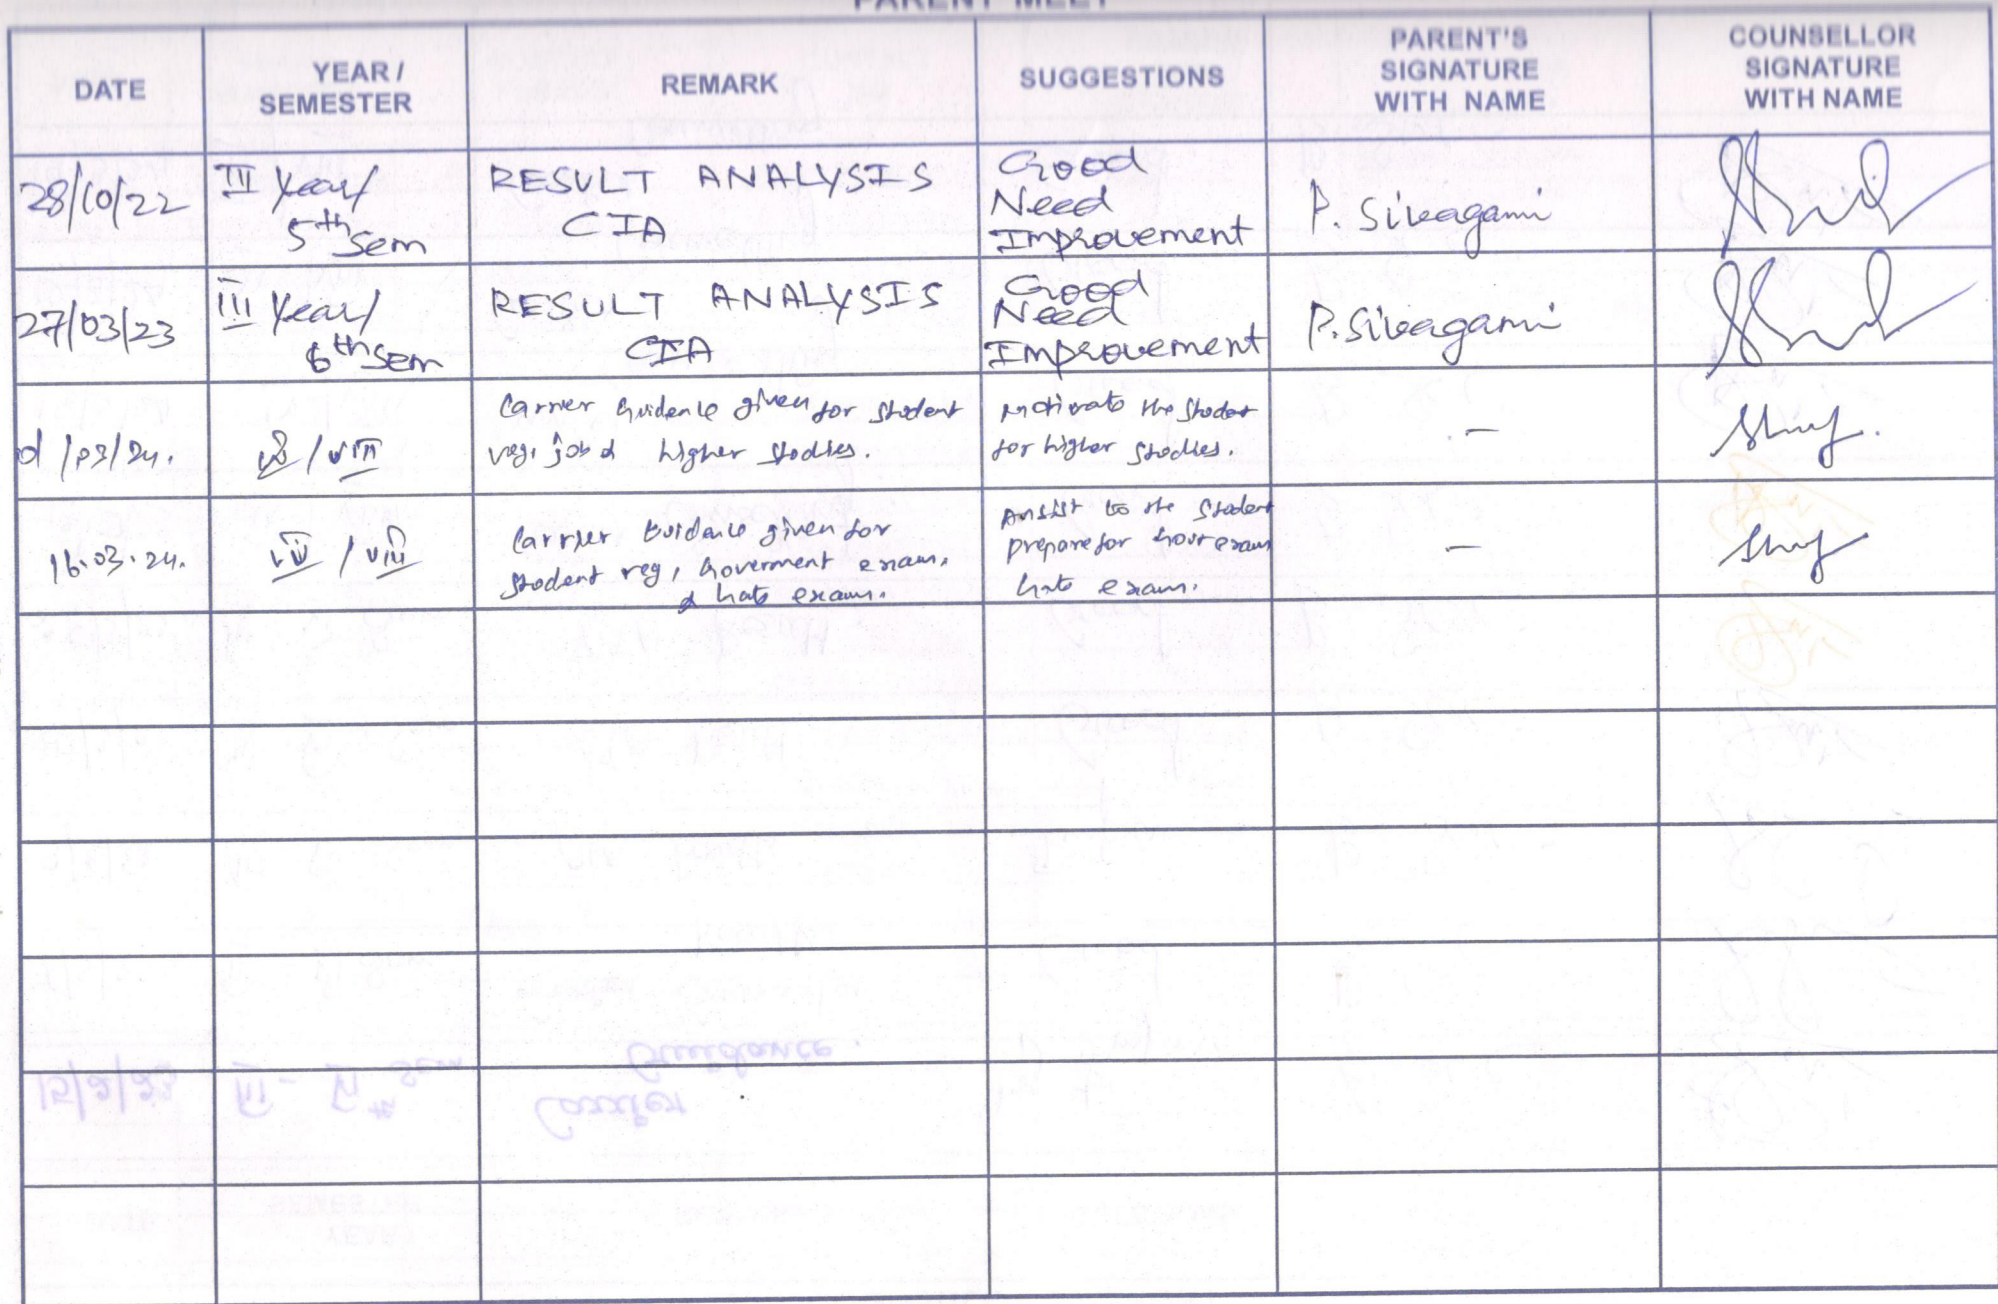 PARENT MEET
DATE
YEAR /
SEMESTER
REMARK
SUGGESTIONS
PARENT'S
SIGNATURE
WITH NAME
COUNSELLOR
SIGNATURE
WITH NAME
28/10/22
III Year/
5th Sem
RESULT ANALYSIS
CIA
Good
Need
Improvement
P. Sivagami
27/03/23
III Year/
6th Sem
RESULT ANALYSIS
CIA
Good
Need
Improvement
P. Sivagami
/ VIII
Carrier Guidence given for student
reg, job & higher studies.
motivate the student
for higher studies.
-
16.03.24.
/ VIII
Carrier Guidence given for
student reg, Goverment exam,
& Gate exam.
to the student
prepare for Govt exam
Gate exam.
-